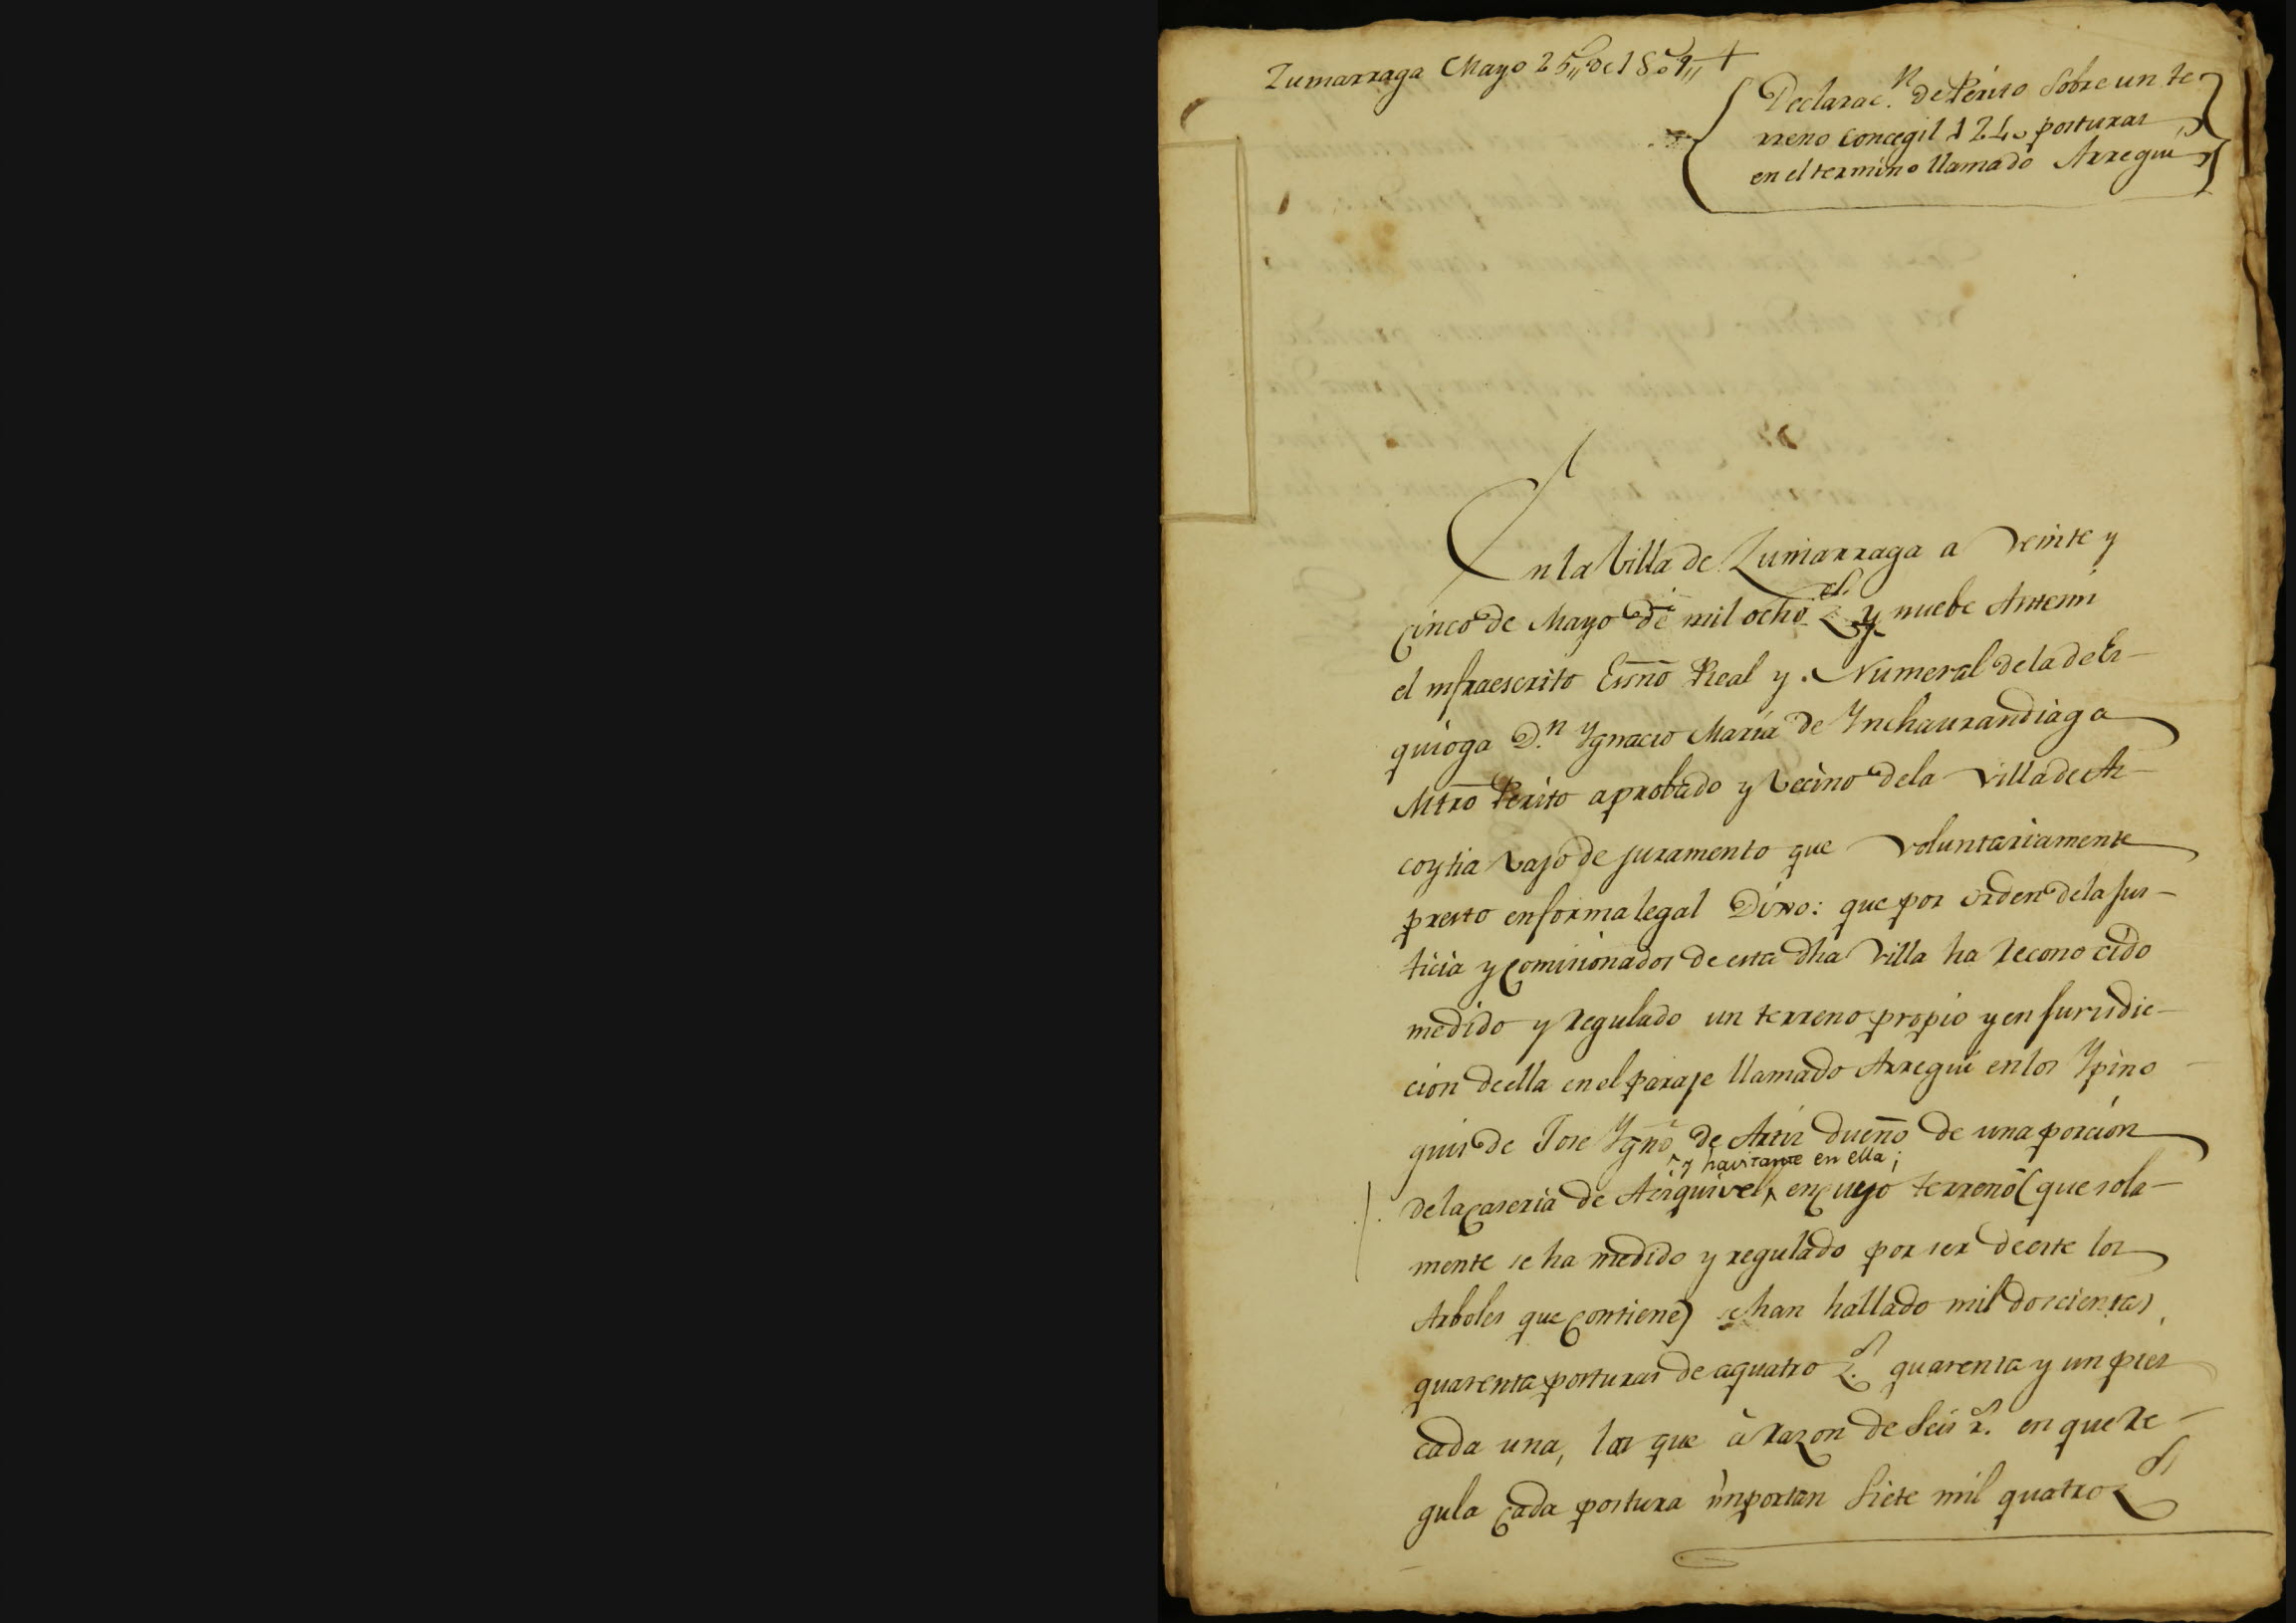 Zumarraga Mayo 25,, de 1809,,
Declarac.n de Périto sobre un te
rreno concegil 1240 posturas
en el termino llamado Arregui
En la Villa de Zumarraga a veinte y
cinco de Mayo de mil ocho z.os y nuebe Antemi
el infraescrito Essno Real y Numeral de la de Es-
quioga D.n Ygnacio María de Ynchaurandiaga
Mtro Perito aprobado y vecino de la villa de Az-
coytia vajo de juramento que voluntariamente
presto en forma legal Dixo: que por orden de la Jus-
ticia y comisionados de esta dha Villa ha reconocido
medido y regulado un terreno propio y en Jurisdic-
cion de ella en el paraje llamado Arregui en los Ypino
quis de Jose Ygno de Artiz dueño de una porción
y havitante en ella;
de la caseria de Aizquivel, en cuyo terreno (que sola-
mente se ha medido y regulado por ser de este los
Arboles que contiene) se han hallado mil doscientas
quarenta posturas de aquatro z.os quarenta y un pies
cada una, las que à razon de Seis r.s en que re-
gula cada postura importan Siete mil quatroz.os